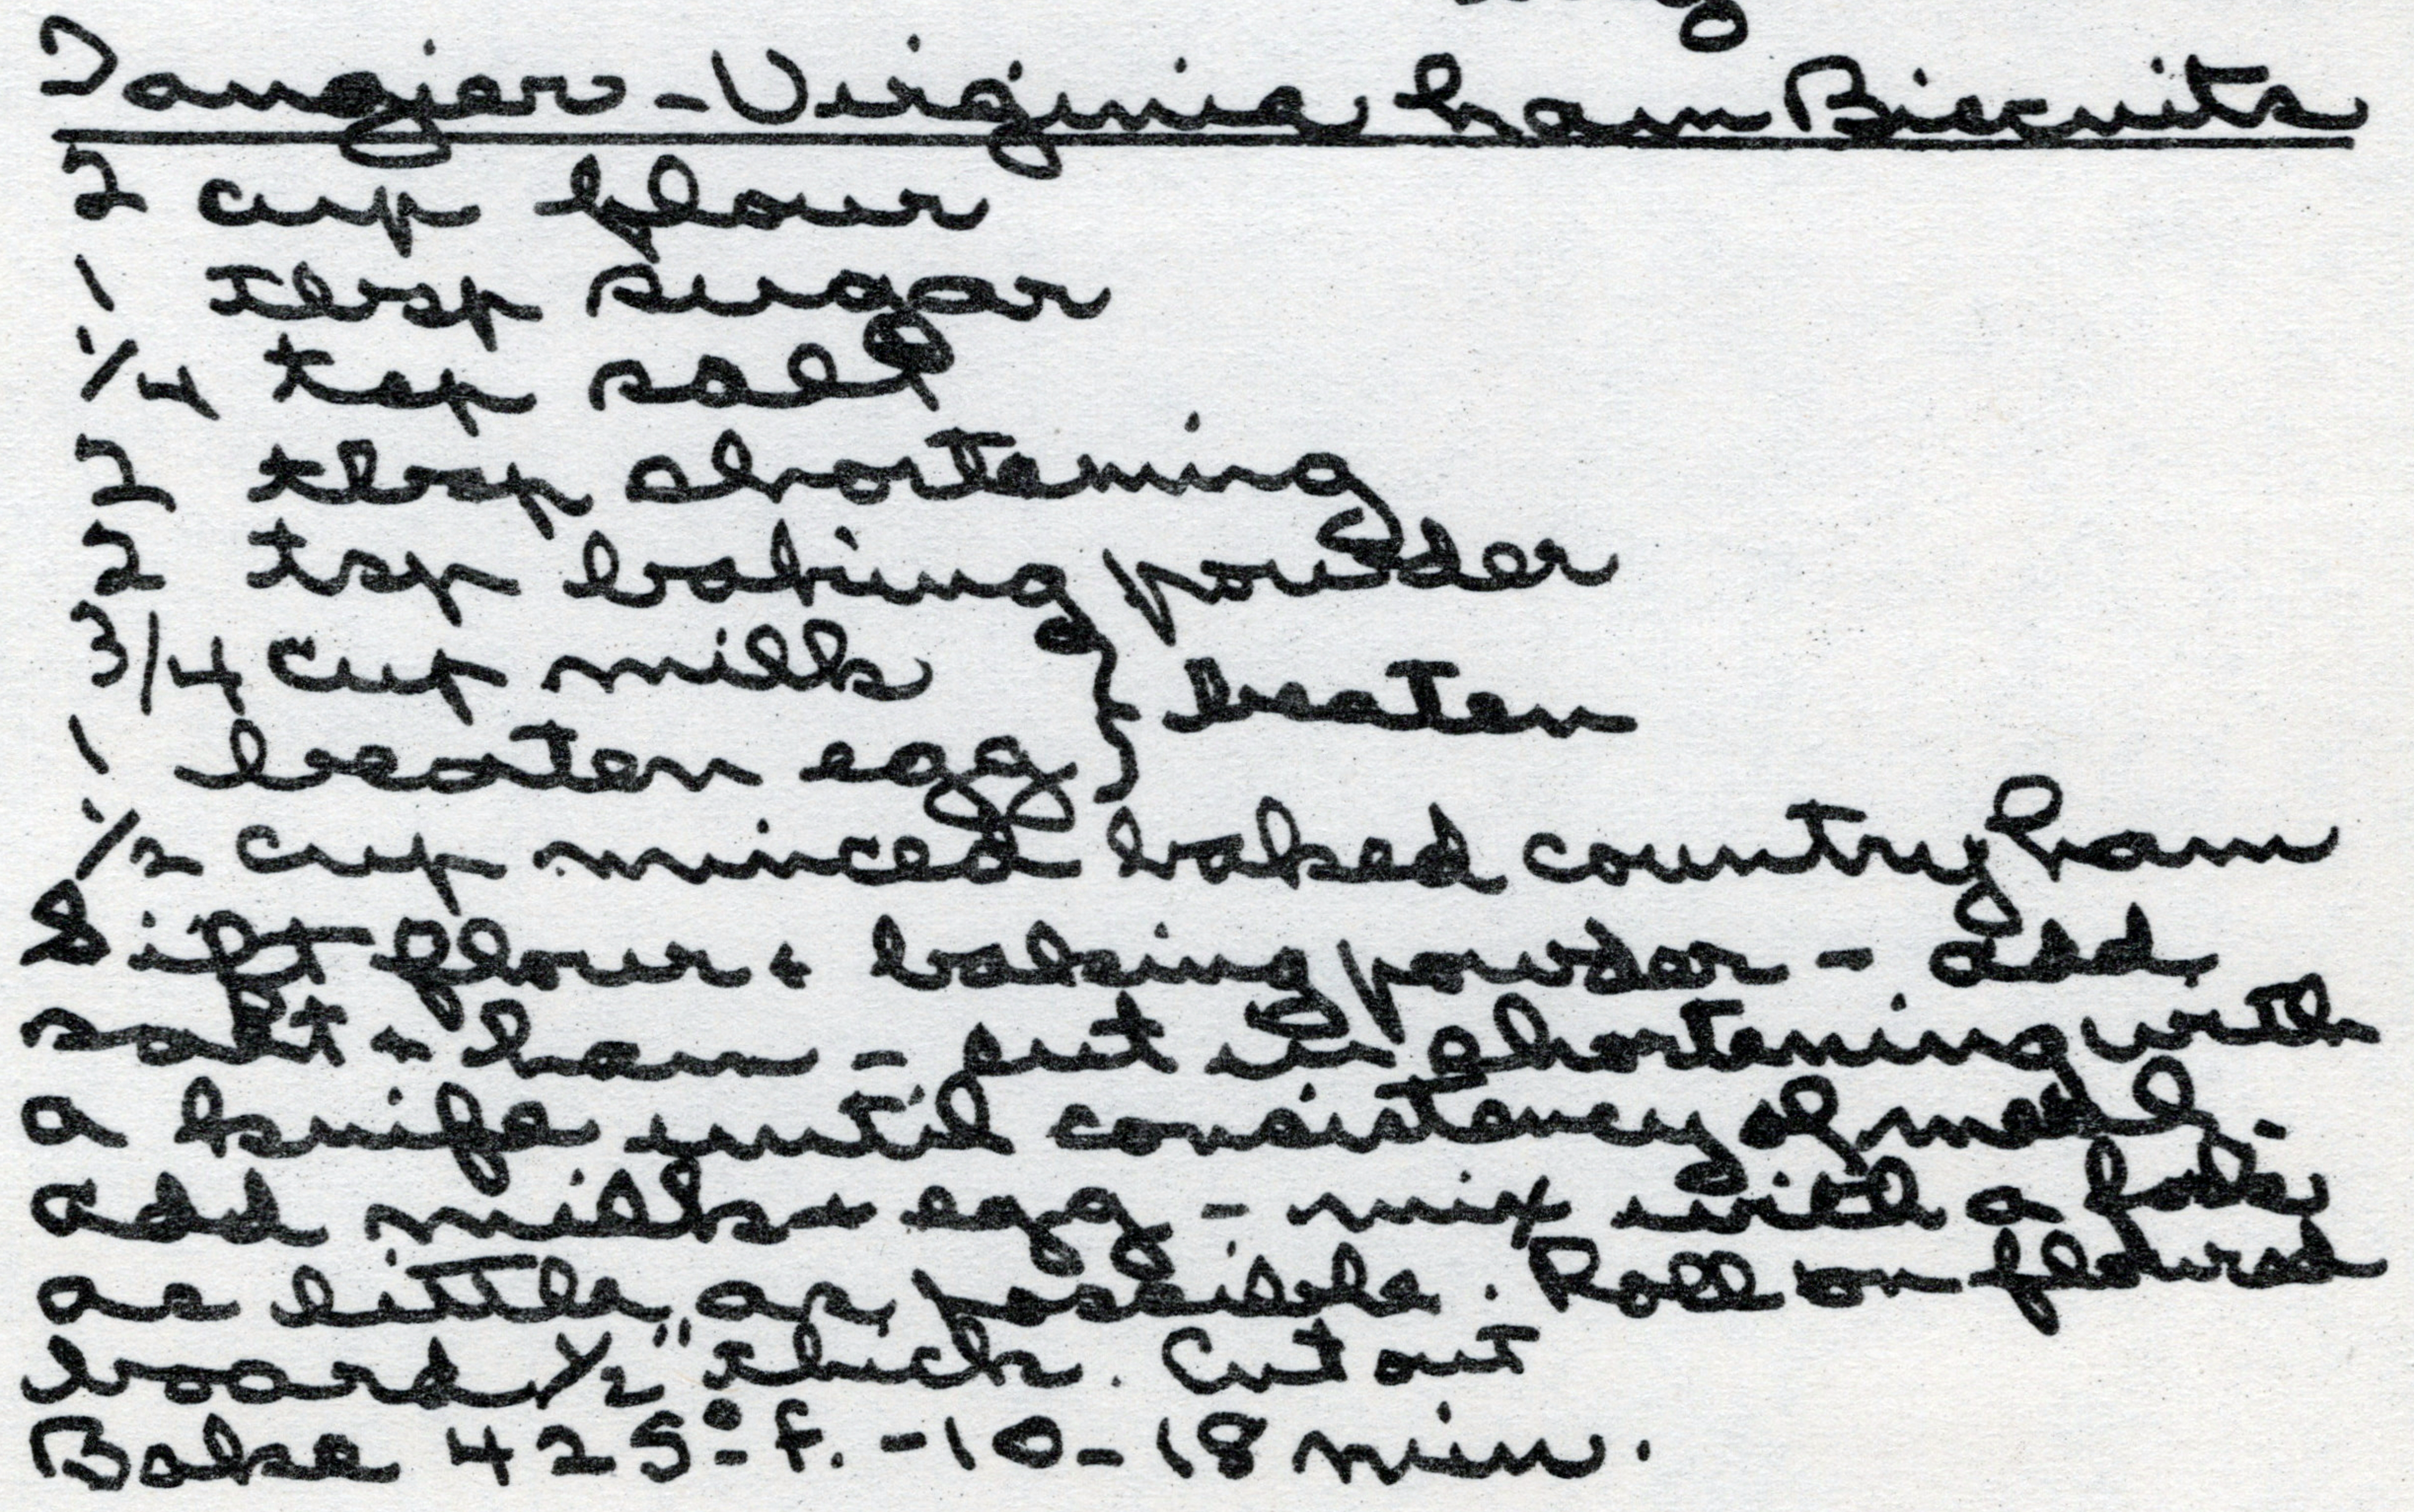 Tangier - Virginia ham Biscuits
2 cup flour
1 tbsp sugar
1/4 tsp salt
2 tbsp shortening
2 tsp baking powder
3/4 cup milk } beaten
1 beaten egg
1/2 cup minced baked country ham
Sift flour + baking powder - add
salt + ham - cut in shortening with
a knife until consistency of meal -
add milk + egg - mix with a fork
as little as possible. Roll on floured
board 1/2" thick. Cut out
Bake 425° F. - 10 - 18 min.